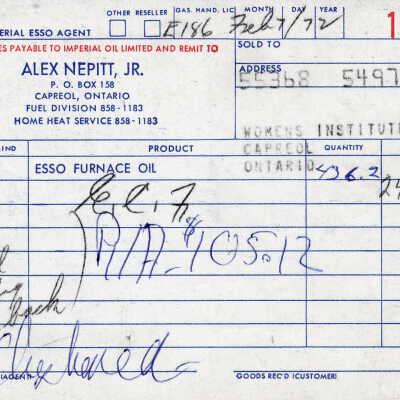 OTHER RESELLER GAS. HAND. LIC. MONTH DAY YEAR
ERIAL ESSO AGENT E186 Feb 7/72 1
ES PAYABLE TO IMPERIAL OIL LIMITED AND REMIT TO
SOLD TO
ALEX NEPITT, JR.
P. O. BOX 158
CAPREOL, ONTARIO
FUEL DIVISION 858-1183
HOME HEAT SERVICE 858-1183
ADDRESS
55368 5497
WOMENS INSTITUTE
CAPREOL
ONTARIO
IND PRODUCT QUANTITY
ESSO FURNACE OIL 436.2
105.12
back
AGENT) GOODS REC'D (CUSTOMER)